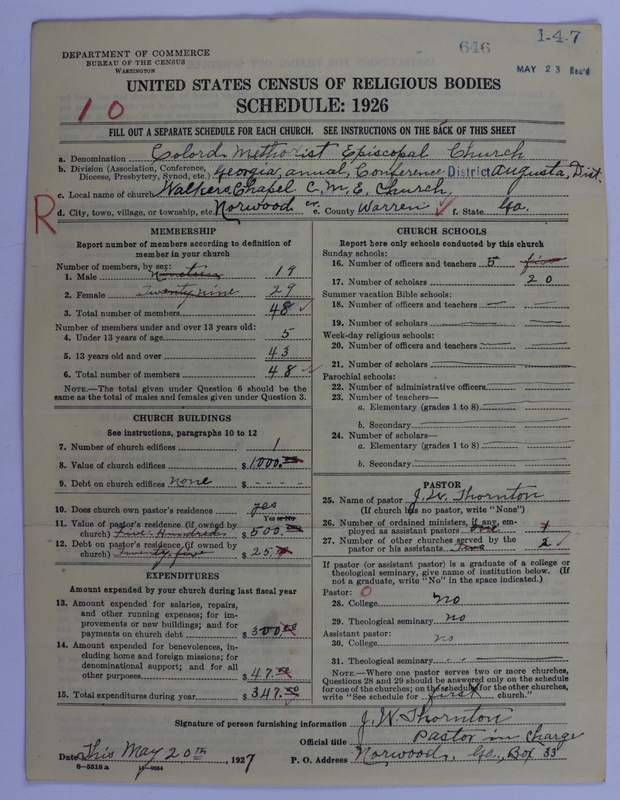 646
1-4-7
DEPARTMENT OF COMMERCE
BUREAU OF THE CENSUS
WASHINGTON
MAY 23 Rec'd
UNITED STATES CENSUS OF RELIGIOUS BODIES
SCHEDULE: 1926
10
FILL OUT A SEPARATE SCHEDULE FOR EACH CHURCH. SEE INSTRUCTIONS ON THE BACK OF THIS SHEET
a. Denomination Colord Methodist Episcopal Church
b. Division (Association, Conference, Diocese, Presbytery, Synod, etc.) Georgia, annual, Conference District Augusta, Dist.
c. Local name of church Walkers Chapel C. M. E. Church.
R
d. City, town, village, or township, etc. Norwood e. County Warren f. State Ga.
MEMBERSHIP
Report number of members according to definition of
member in your church
Number of members, by sex:
1. Male Nineteen 19
2. Female Twenty nine 29
3. Total number of members 48
Number of members under and over 13 years old:
4. Under 13 years of age 5
5. 13 years old and over 43
6. Total number of members 48
NOTE.—The total given under Question 6 should be the
same as the total of males and females given under Question 3.
CHURCH BUILDINGS
See instructions, paragraphs 10 to 12
7. Number of church edifices 1
8. Value of church edifices $ 1000.00
9. Debt on church edifices none $ - - - -
10. Does church own pastor's residence yes
Yes or No
11. Value of pastor's residence (if owned by
church) Five Hundred $ 500.00
12. Debt on pastor's residence (if owned by
church) Twenty five $ 25.00
EXPENDITURES
Amount expended by your church during last fiscal year
13. Amount expended for salaries, repairs,
and other running expenses; for im-
provements or new buildings; and for
payments on church debt $ 300.00
14. Amount expended for benevolences, in-
cluding home and foreign missions; for
denominational support; and for all
other purposes $ 47.50
15. Total expenditures during year $ 347.50
CHURCH SCHOOLS
Report here only schools conducted by this church
Sunday schools:
16. Number of officers and teachers 5 five
17. Number of scholars 20
Summer vacation Bible schools:
18. Number of officers and teachers
19. Number of scholars
Week-day religious schools:
20. Number of officers and teachers
21. Number of scholars
Parochial schools:
22. Number of administrative officers
23. Number of teachers—
a. Elementary (grades 1 to 8)
b. Secondary
24. Number of scholars—
a. Elementary (grades 1 to 8)
b. Secondary
PASTOR
25. Name of pastor J. W. Thornton
(If church has no pastor, write "None")
26. Number of ordained ministers, if any, em-
ployed as assistant pastors one 1
27. Number of other churches served by the
pastor or his assistants Two 2
If pastor (or assistant pastor) is a graduate of a college or
theological seminary, give name of institution below. (If
not a graduate, write "No" in the space indicated.)
Pastor: 0
28. College no
29. Theological seminary no
Assistant pastor:
30. College no
31. Theological seminary
NOTE.—Where one pastor serves two or more churches,
Questions 28 and 29 should be answered only on the schedule
for one of the churches; on the schedule for the other churches,
write "See schedule for first church."
Signature of person furnishing information J. W. Thornton
Official title Pastor in Charge
Date This May 20th, 1927 P. O. Address Norwood, Ga., Box 33
8—5318a